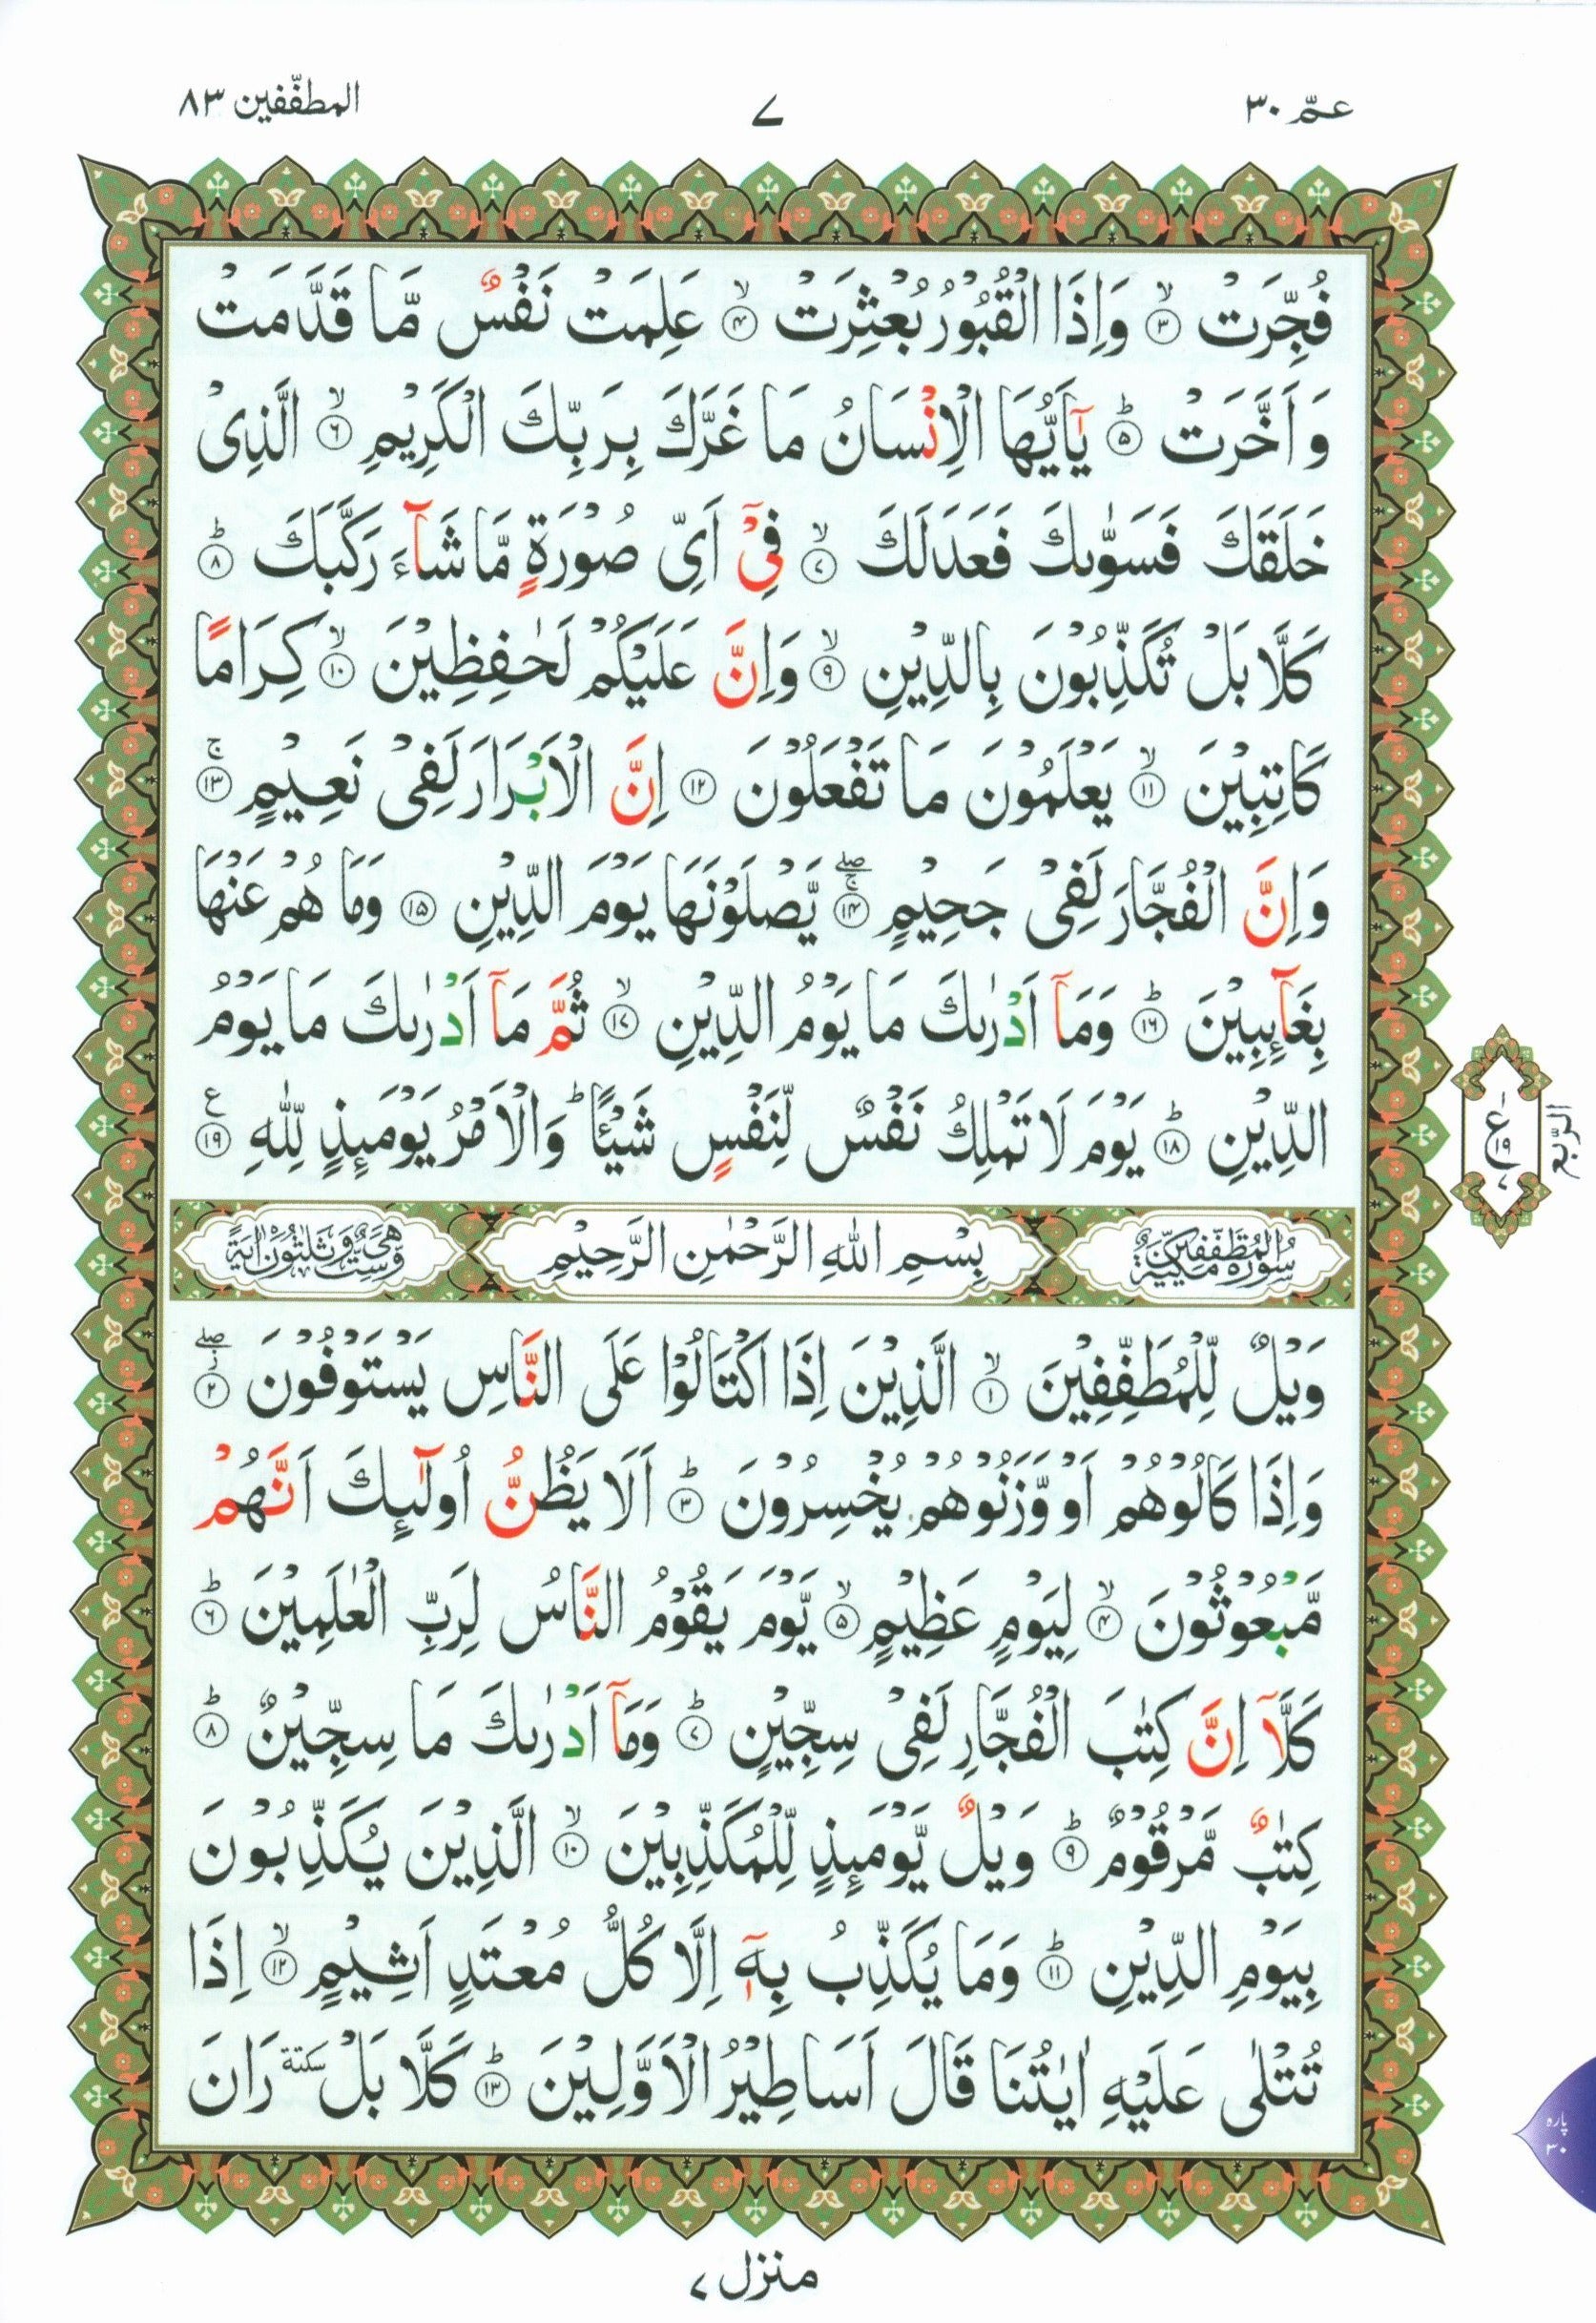 عمّ ٣٠
٧
المطفّفين ٨٣
فُجِّرَتْ ۙ﴿٣﴾ وَاِذَا الْقُبُوْرُ بُعْثِرَتْ ۙ﴿٤﴾ عَلِمَتْ نَفْسٌ مَّا قَدَّمَتْ
وَ اَخَّرَتْ ؕ﴿٥﴾ يٰۤاَيُّهَا الْاِنْسَانُ مَا غَرَّكَ بِرَبِّكَ الْكَرِيْمِ ۙ﴿٦﴾ الَّذِىْ
خَلَقَكَ فَسَوّٰىكَ فَعَدَلَكَ ۙ﴿٧﴾ فِىْۤ اَىِّ صُوْرَةٍ مَّا شَآءَ رَكَّبَكَ ؕ﴿٨﴾
كَلَّا بَلْ تُكَذِّبُوْنَ بِالدِّيْنِ ۙ﴿٩﴾ وَاِنَّ عَلَيْكُمْ لَحٰفِظِيْنَ ۙ﴿١٠﴾ كِرَامًا
كَاتِبِيْنَ ۙ﴿١١﴾ يَعْلَمُوْنَ مَا تَفْعَلُوْنَ ﴿١٢﴾ اِنَّ الْاَبْرَارَ لَفِىْ نَعِيْمٍ ۚ﴿١٣﴾
وَاِنَّ الْفُجَّارَ لَفِىْ جَحِيْمٍ ۖۚ﴿١٤﴾ يَّصْلَوْنَهَا يَوْمَ الدِّيْنِ ﴿١٥﴾ وَمَا هُمْ عَنْهَا
بِغَآىِٕبِيْنَ ؕ﴿١٦﴾ وَمَاۤ اَدْرٰىكَ مَا يَوْمُ الدِّيْنِ ۙ﴿١٧﴾ ثُمَّ مَاۤ اَدْرٰىكَ مَا يَوْمُ
الدِّيْنِ ؕ﴿١٨﴾ يَوْمَ لَا تَمْلِكُ نَفْسٌ لِّنَفْسٍ شَيْـًٔا ؕ وَالْاَمْرُ يَوْمَىِٕذٍ لِّلّٰهِ ﴿١٩﴾ ع
ع ١٩ ٧
الرّبع
سُوْرَةُ الْمُطَفِّفِيْنَ مَكِّيَّةٌ
بِسْمِ اللّٰهِ الرَّحْمٰنِ الرَّحِيْمِ
وَّهِىَ سِتٌّ وَّثَلٰثُوْنَ اٰيَةً
وَيْلٌ لِّلْمُطَفِّفِيْنَ ۙ﴿١﴾ الَّذِيْنَ اِذَا اكْتَالُوْا عَلَى النَّاسِ يَسْتَوْفُوْنَ ۖ﴿٢﴾
وَاِذَا كَالُوْهُمْ اَوْ وَّزَنُوْهُمْ يُخْسِرُوْنَ ؕ﴿٣﴾ اَلَا يَظُنُّ اُولٰٓىِٕكَ اَنَّهُمْ
مَّبْعُوْثُوْنَ ۙ﴿٤﴾ لِيَوْمٍ عَظِيْمٍ ۙ﴿٥﴾ يَّوْمَ يَقُوْمُ النَّاسُ لِرَبِّ الْعٰلَمِيْنَ ؕ﴿٦﴾
كَلَّاۤ اِنَّ كِتٰبَ الْفُجَّارِ لَفِىْ سِجِّيْنٍ ؕ﴿٧﴾ وَمَاۤ اَدْرٰىكَ مَا سِجِّيْنٌ ؕ﴿٨﴾
كِتٰبٌ مَّرْقُوْمٌ ؕ﴿٩﴾ وَيْلٌ يَّوْمَىِٕذٍ لِّلْمُكَذِّبِيْنَ ۙ﴿١٠﴾ الَّذِيْنَ يُكَذِّبُوْنَ
بِيَوْمِ الدِّيْنِ ؕ﴿١١﴾ وَمَا يُكَذِّبُ بِهٖۤ اِلَّا كُلُّ مُعْتَدٍ اَثِيْمٍ ۙ﴿١٢﴾ اِذَا
تُتْلٰى عَلَيْهِ اٰيٰتُنَا قَالَ اَسَاطِيْرُ الْاَوَّلِيْنَ ؕ﴿١٣﴾ كَلَّا بَلْ سكتة رَانَ
پاره
٣٠
منزل ٧